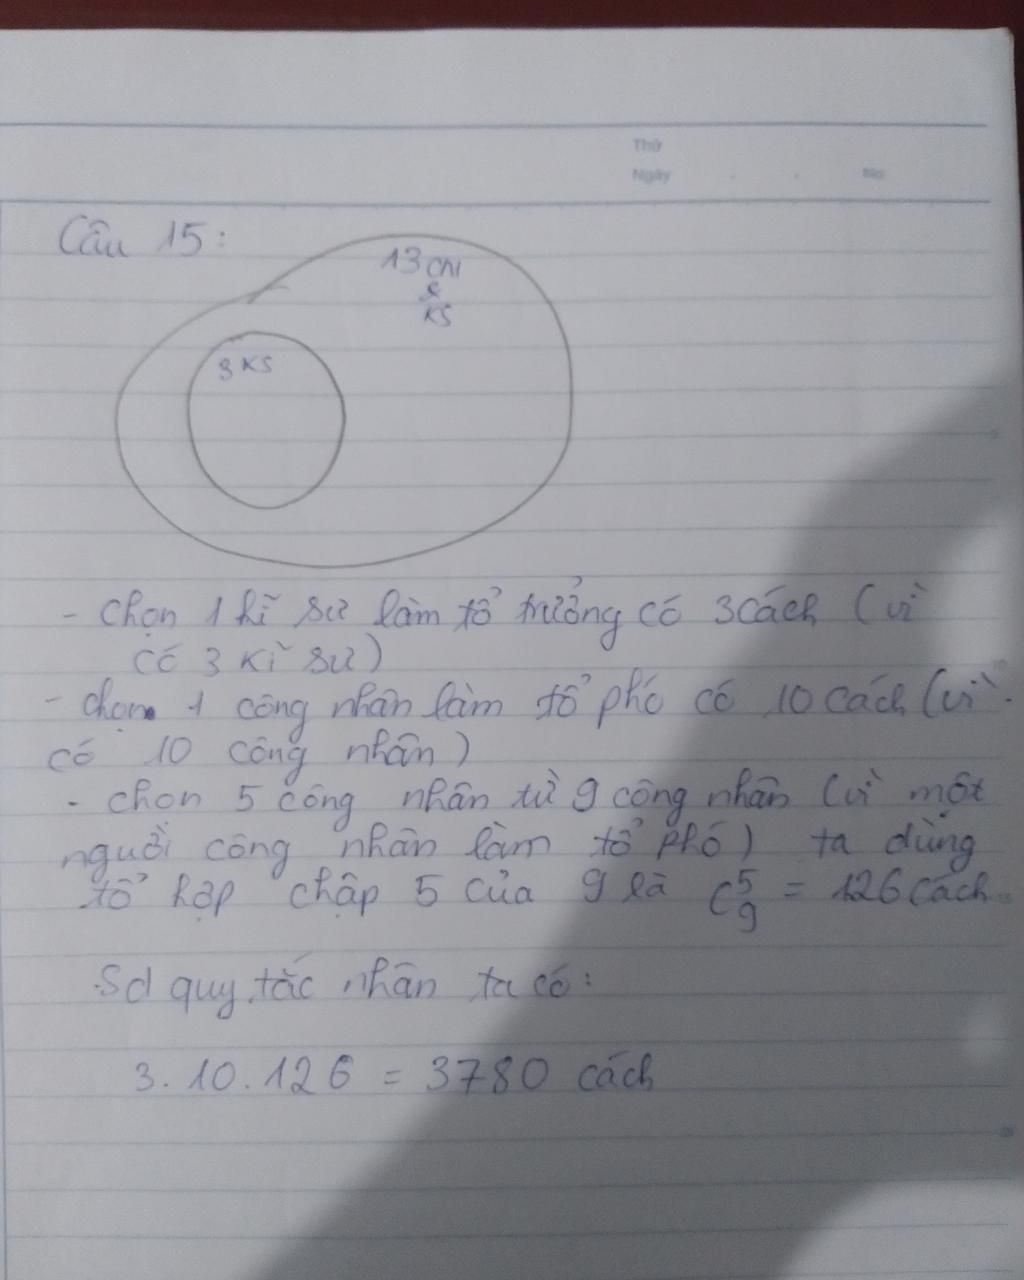 Thứ
Ngày No
Câu 15:
13 CN
&
KS
3 KS
- Chọn 1 kĩ sư làm tổ trưởng có 3 cách (vì
có 3 kĩ sư)
- chọn 1 công nhân làm tổ phó có 10 cách (vì
có 10 công nhân)
- chọn 5 công nhân từ 9 công nhân (vì một
người công nhân làm tổ phó) ta dùng
tổ hợp chập 5 của 9 là C⁵₉ = 126 cách
Sd quy tắc nhân ta có:
3.10.126 = 3780 cách